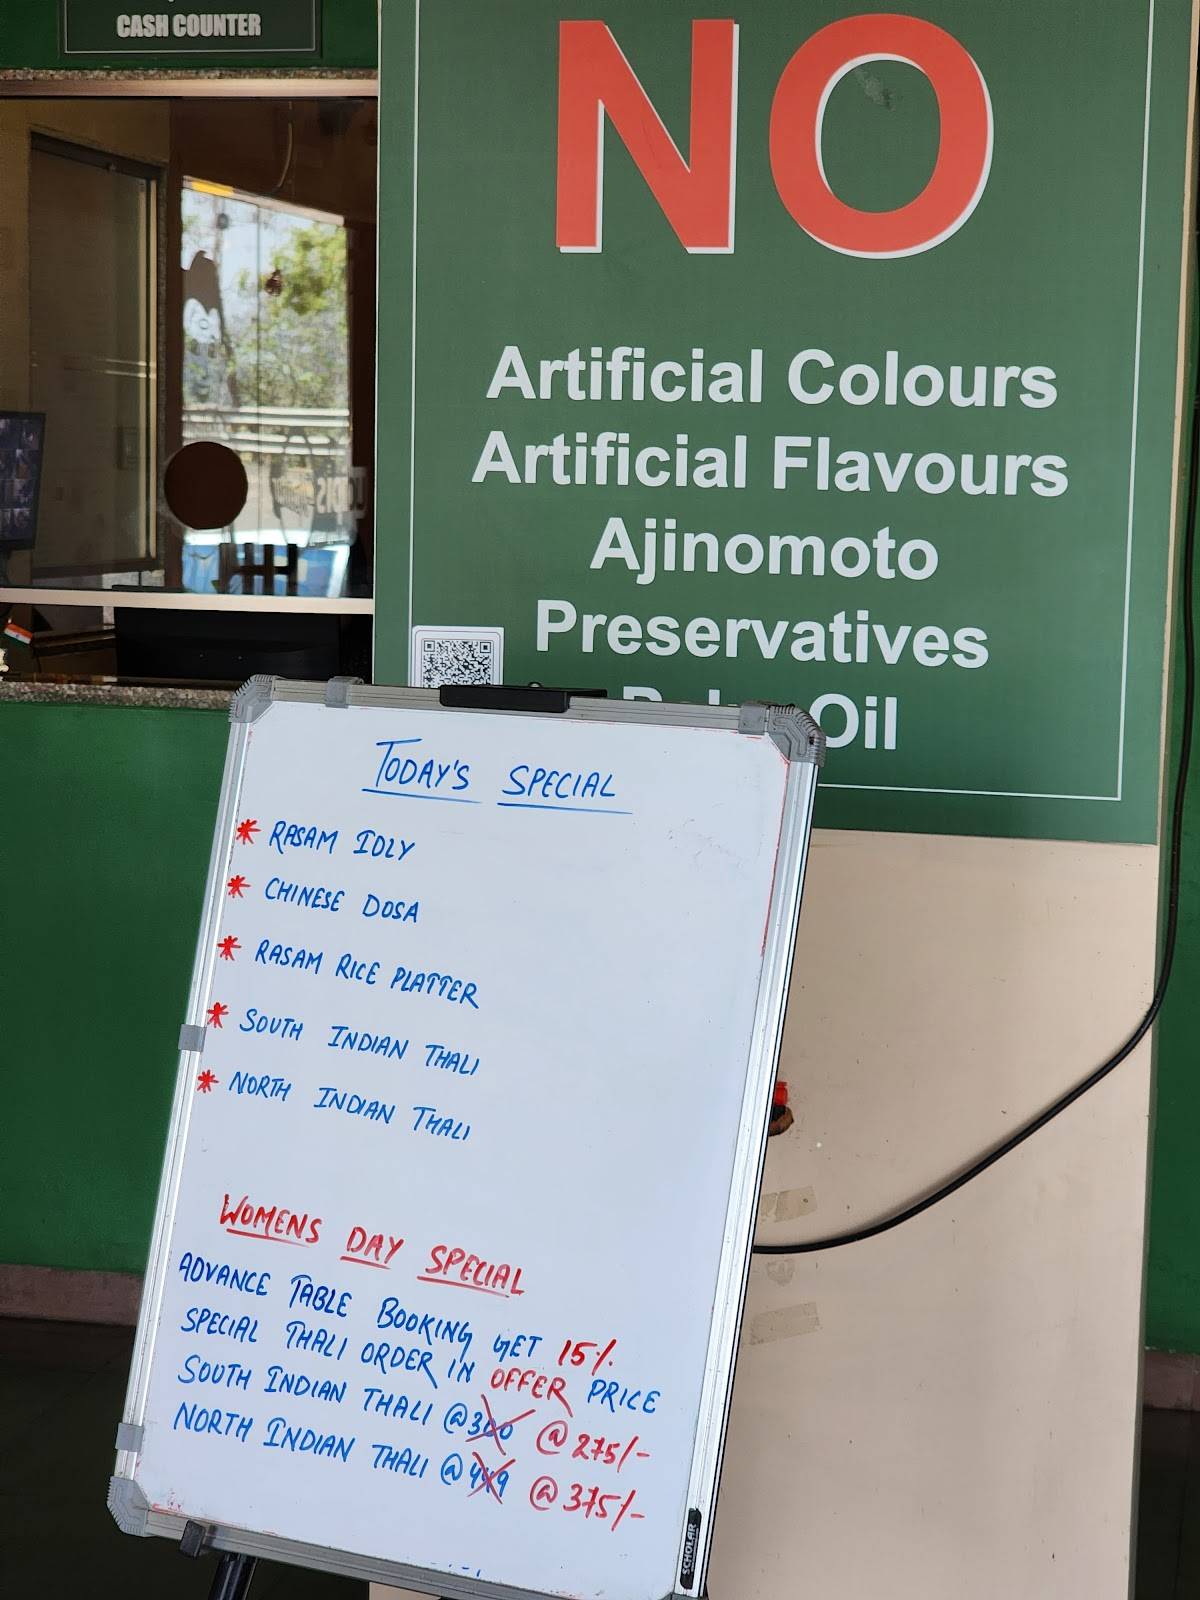 CASH COUNTER
NO
Artificial Colours
Artificial Flavours
Ajinomoto
Preservatives
Oil
TODAY'S SPECIAL
* RASAM IDLY
* CHINESE DOSA
* RASAM RICE PLATTER
* SOUTH INDIAN THALI
* NORTH INDIAN THALI
WOMENS DAY SPECIAL
ADVANCE TABLE BOOKING GET 15%
SPECIAL THALI ORDER IN OFFER PRICE
SOUTH INDIAN THALI @300 @275/-
NORTH INDIAN THALI @449 @375/-
SCHOLAR